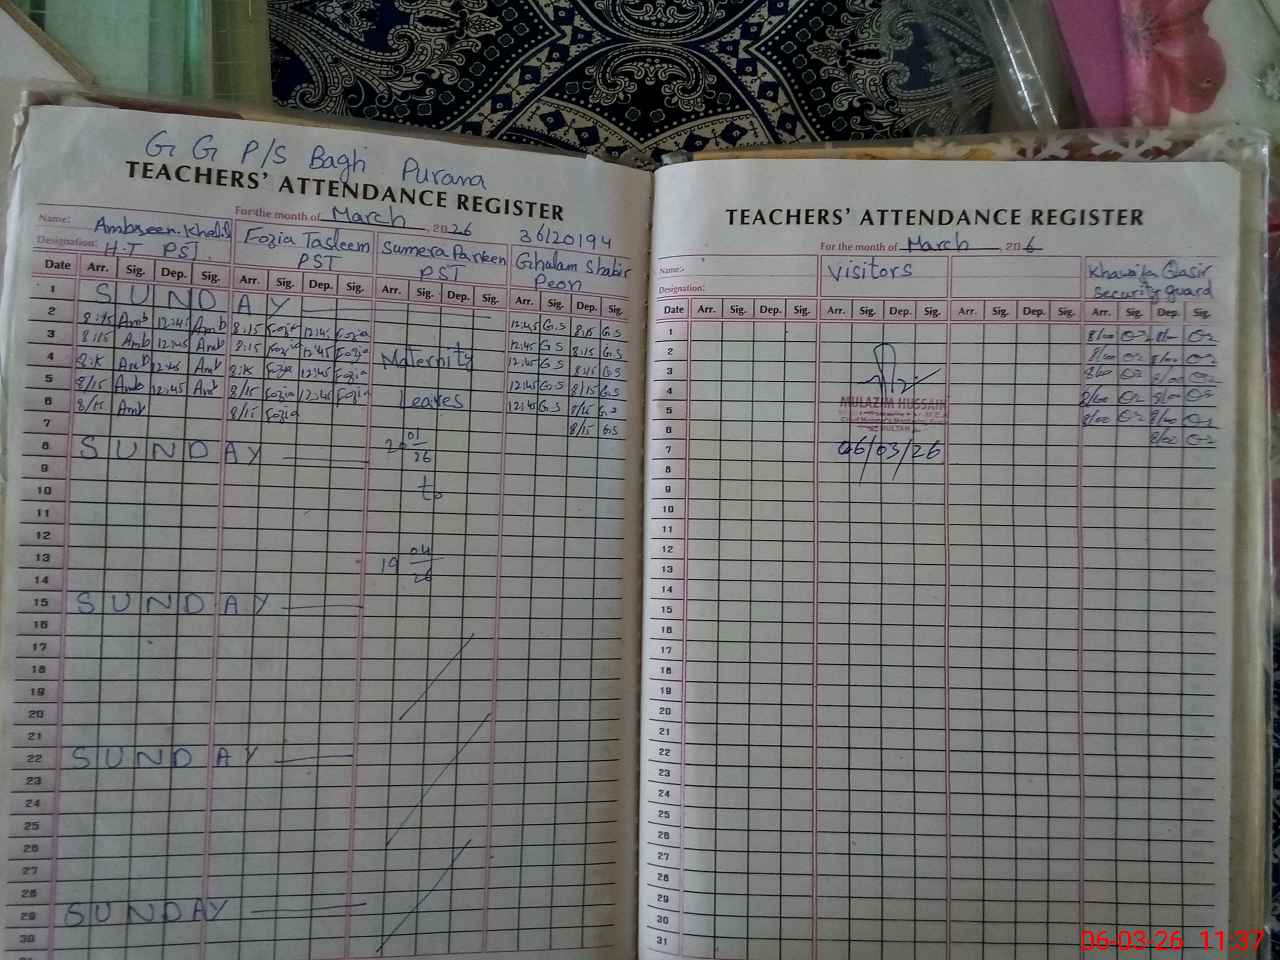 G G P/S Bagh Purana
TEACHERS' ATTENDANCE REGISTER
For the month of March, 2026
36120194
Name: Ambreen Khalil Fozia Tasleem Sumera Parveen Ghulam Shabir
Designation: H.T PST. PST PST Peon
Date Arr. Sig. Dep. Sig. Arr. Sig. Dep. Sig. Arr. Sig. Dep. Sig. Arr. Sig. Dep. Sig.
1 SUNDAY
2 8:15 Amb 12:45 Amb 8:15 Fozia 12:45 Fozia 12:45 G.S 8:15 G.S
3 8:15 Amb 12:45 Amb 8:15 Fozia 12:45 Fozia 12:45 G S 8:15 G.S
4 8:15 Amb 12:45 Amb 8:15 Fozia 12:45 Fozia Maternity 12:45 G S 8:15 G S
5 8/15 Amb 12:45 Amb 8/15 Fozia 12:45 Fozia 12:45 G.S 8/15 G.S
6 8/15 Amb 8/15 Fozia Leaves 12:45 G.S 8/15 G.S
7 8/15 G.S
8 SUNDAY 20 01/26
9
10 to
11
12
13 19 04/26
14
15 SUNDAY
16
17
18
19
20
21
22 SUNDAY
23
24
25
26
27
28
29 SUNDAY
30
TEACHERS' ATTENDANCE REGISTER
For the month of March 2026
Name:- Visitors Khawaja Qasir
Designation: Security guard
Date Arr. Sig. Dep. Sig. Arr. Sig. Dep. Sig. Arr. Sig. Dep. Sig. Arr. Sig. Dep. Sig.
1 8/00 8/00
2 8/00 8/00
3 8/00 8/00
4 8/00 8/00
MULAZIM HUSSAIN
5 8/00 8/00
6 8/00
7 06/03/26
8
9
10
11
12
13
14
15
16
17
18
19
20
21
22
23
24
25
26
27
28
29
30
31
06-03-26 11:37